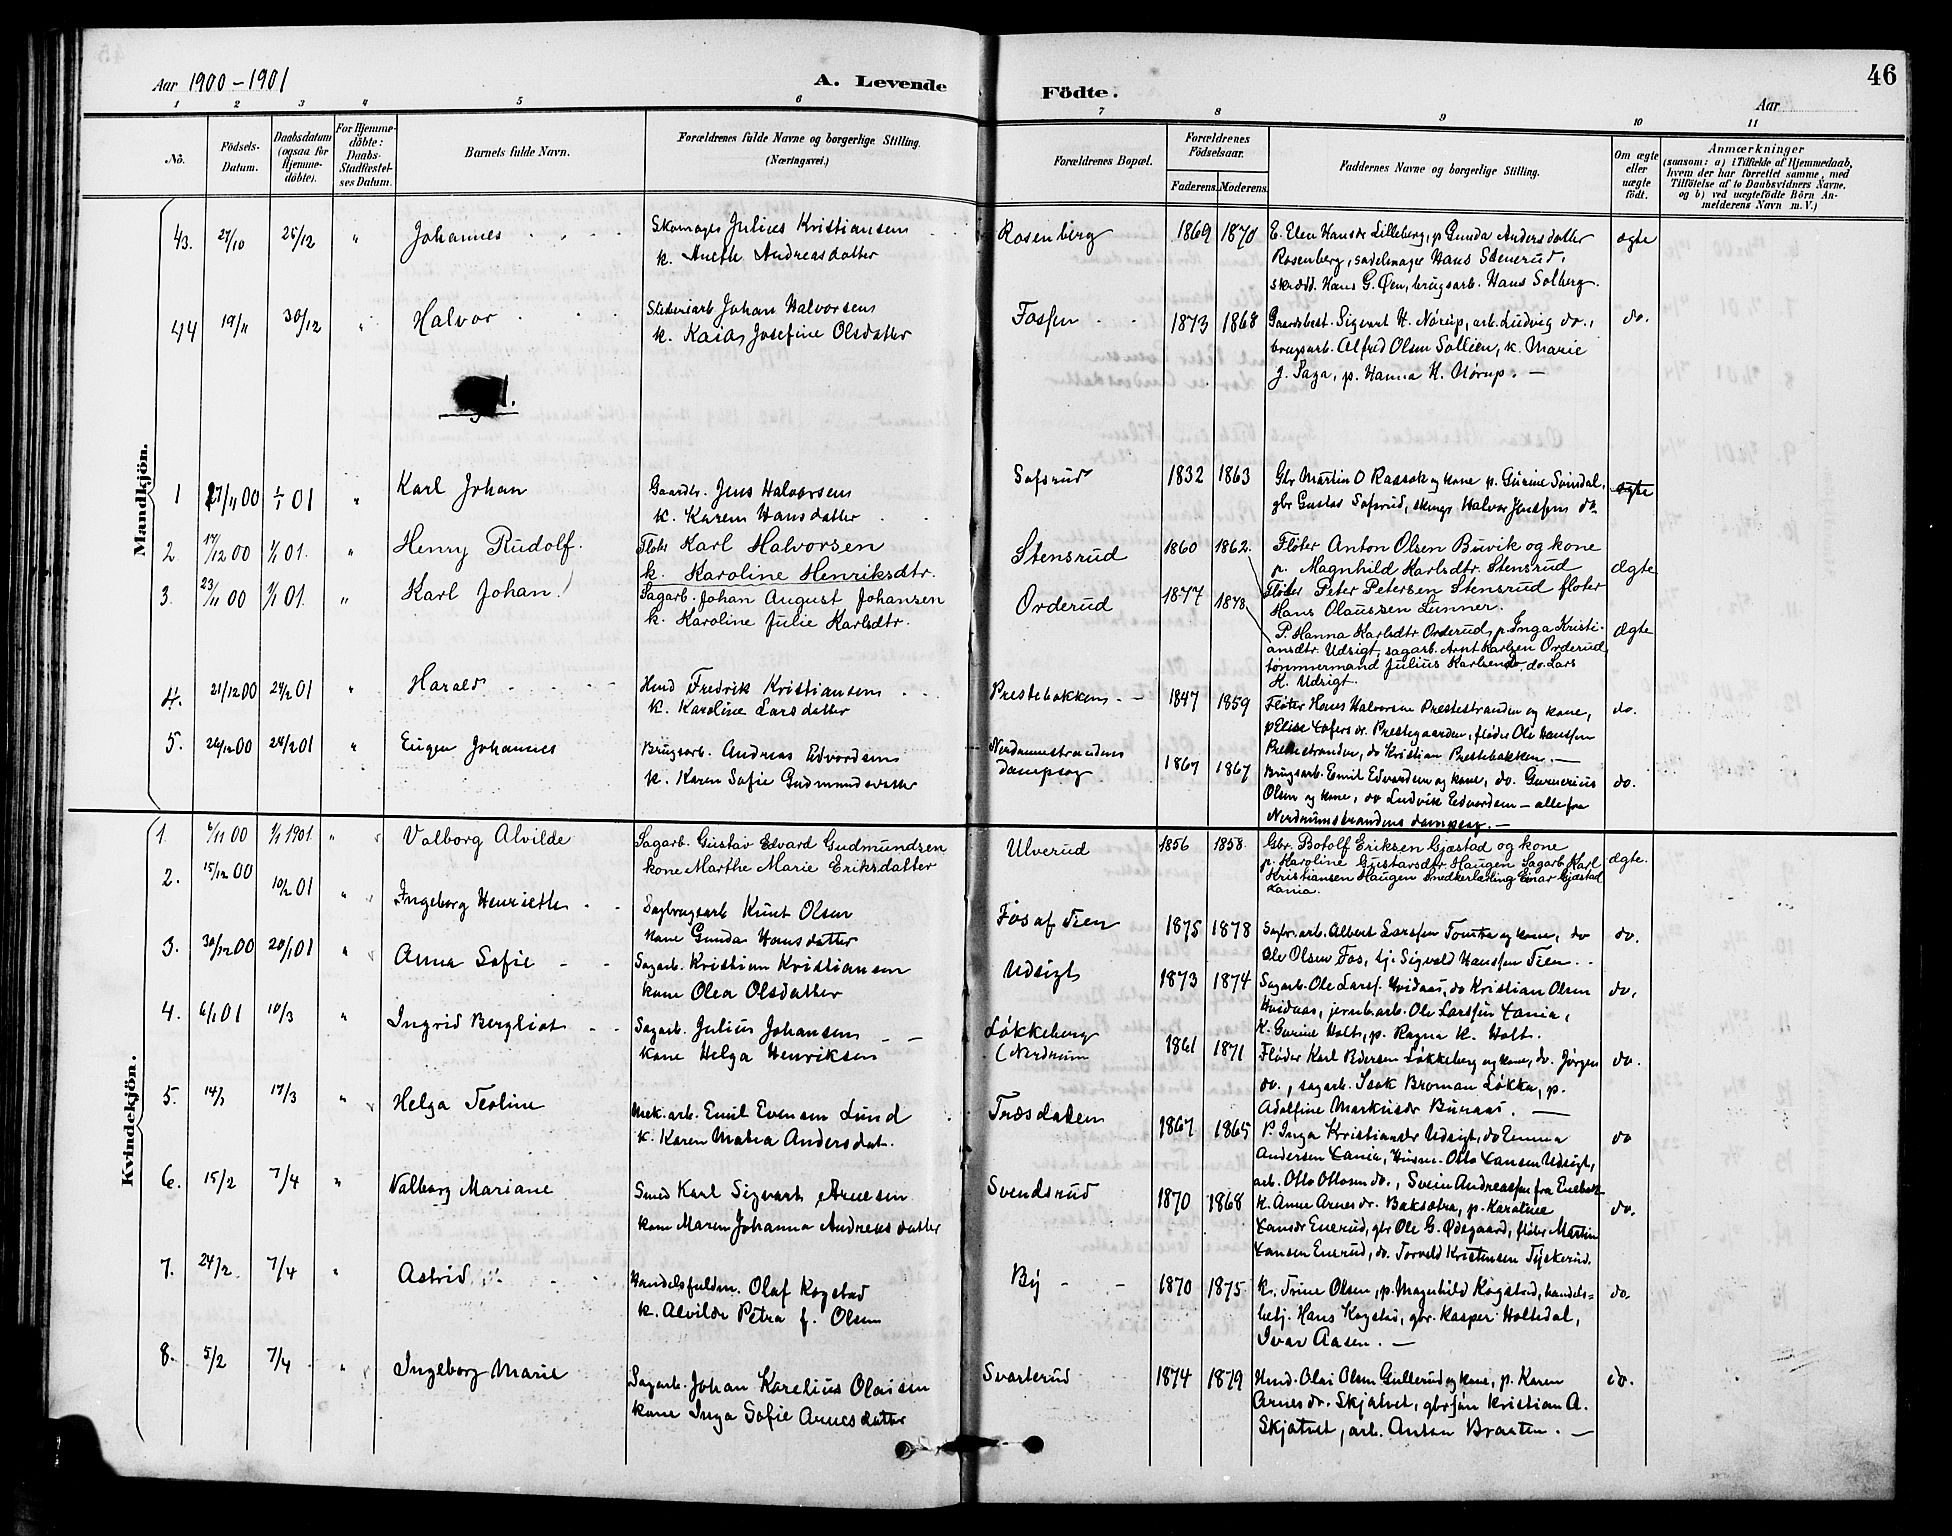 46
Aar 1900-1901
A. Levende
Födte.
Aar
1 2 3 4 5 6 7 8 9 10 11
No.
Födsels-
Datum.
Daabsdatum
(ogsaa for
Hjemme-
döbte).
For Hjemme-
döbte:
Daabs-
Stadfæstel-
ses Datum.
Barnets fulde Navn.
Forældrenes fulde Navne og borgerlige Stilling.
(Næringsvei.)
Forældrenes Bopæl.
Forældrenes
Födselsaar.
Faderens. Moderens.
Faddernes Navne og borgerlige Stilling.
Om ægte
eller
uægte
födt.
Anmærkninger
(saasom: a) i Tilfælde af Hjemmedaab,
hvem der har forrettet samme, med
Tilföielse af to Daabsvidners Navne,
og b) ved uægtefödte Börn An-
melderens Navn m. V.)
Mandkjön.
43. 27/10 25/12 " Johannes
Skomager Julius Kristiansen
k. Anethe Andreasdatter
Rosenberg 1869 1870
E. Elen Hansdr Lilleberg, p Gunda Andersdatter
Rosenberg, sadelmager Hans Stenerud,
skrædd. Hans G. Øen, brugsarb. Hans Solberg.
ægte
44 19/11 30/12 " Halvor
Johan Halvorsen
k. Kaia Josefine Olsdatter
Fossen 1873 1868
Gaardbest. Sigvart H. Nörup, arb. Ludvig do.,
brugsarb. Alfred Olsen Sollien, k. Marie
J. Saga, p. Hanna H. Nörup. —
do.
1 27/11 00 1/1 01 " Karl Johan
Gaardbr. Jens Halvorsen
k. Karen Hansdatter
Sofsrud 1832 1863
Gbr Martin O Rassok og kone p. Gurine Svindal,
gbr Gustav Sofsrud, Halvor Jenssen do
ægte
2. 17/12 00 1/1 01. " Henry Rudolf.
Fløter Karl Halvorsen
k. Karoline Henriksdtr.
Stensrud 1860 1862.
Fløter Anton Olsen Buvik og kone
p. Magnhild Karlsdtr. Stensrud
Fløter Peter Petersen Stensrud fløter
Hans Olaussen Lunner.
Ægte
3. 23/11 00 1/1 01. " Karl Johan
Sagarb. Johan August Johansen
k. Karoline Julie Karlsdtr.
Orderud 1877 1878
P. Hanna Karlsdtr Orderud, p. Inga Kristi-
ansdtr. Udsigt, sagarb. Arnt Karlsen Orderud,
tømmermand Julius Karlsen do do. Lars
K. Udsigt.
Ægte
4. 21/12 00 24/2 01 " Harald
Fredrik Kristiansen
k. Karoline Larsdatter
Prestebakken 1847 1859
Fløter Hans Halvorsen Prestestranden og kone,
Prestegaarden, fløder Ole Hansen
Prestestranden, do Kristian Prestebakken. —
do.
5. 26/12 00 24/2 01 " Eugen Johannes
Brugsarb. Andreas Edvardsen
k. Karen Sofie Gudmundsdatter
Nerdrumstrandens
dampsag 1867 1867
Brugsarb. Emil Edvardsen og kone, do. Gunerius
Olsen og kone, do Ludvik Edvardsen — alle fra
Nerdrumstrandens dampsag. —
do.
Kvindekjön.
1. 6/11 00 1/1 1901 " Valborg Alvilde
Sagarb. Gustav Edvard Gudmundsen
kone Marthe Marie Eriksdatter
Ulverud 1856 1858.
Gbr. Botolf Eriksen Gjæstad og kone
p. Karoline Gustavsdtr. Haugen Sagarb. Karl
Kristiansen Haugen Snedkerlærling Einar Gjæstad
Lania.
ægte.
2. 15/12 00 10/2 01 " Ingeborg Henriette
Sagbrugsarb Knut Olsen
Kone Gunda Hansdatter
Fos af Tien 1875 1878
Sagbr. arb. Albert Larssen Tomta og kone, do
Ole Olsen Fos, tj. Sigvald Hanssen Tien.
do.
3. 30/12 00 20/1 01 " Anna Sofie
Sagarb. Kristian Kristiansen
kone Olea Olsdatter
Udsigt 1873 1874
Sagarb. Ole Larss. Hvidaas, do Kristian Olsen
Hvidaas, jernb. arb. Ole Larssen Lania,
K. Gurine Holt, p. Ragna K. Holt.
do.
4. 6/1 01 10/3 " Ingrid Bergliot
Sagarb. Julius Johansen
Kone Helga Henriksen
Løkkeberg
(Nerdrum 1861 1871
Fløder Karl Pedersen Løkkeberg og kone, do. Jørgen
do., sagarb. Isak Broman Løkka, p.
Adolfine Markusdr Buraas. —
do.
5. 14/1 17/3 " Helga Teoline
Mek. arb. Emil Evensen Lund
k. Karen Matea Andersdat.
Træsdalen 1867 1865
P. Inga Kristiansdr Udsigt, do Emma
Andersen Lania, Husm. Otto Larsen Udsigt,
arb. Otto Ottosen do., Svein Andreassen fra Enebak
do
6. 15/2 7/4 " Valborg Mariane
Smed Karl Sigvart Arnesen
kone Maren Johanna Andreasdatter
Svendsrud 1870 1868
k. Anne Arnesdr. Baksætra, p. Karoline
Larsdr Enerud, gbr Ole G. Ødegaard, fløder Martin
Larsen Enerud, do. Torvald Kristensen Tyskerud.
do.
7. 24/2. 7/4 " Astrid
Handelsfuldm. Olaf Kogstad
k. Alvilde Petra f. Olsen
By 1870 1875
k. Trine Olsen, p. Magnhild Kogstad, handels-
betj. Hans Kogstad, gbr. Kasper Holtedal,
Ivar Aasen. —
do.
8. 5/2 7/4 " Ingeborg Marie
Sagarb. Johan Karelius Olaisen
kone Inga Sofie Arnesdatter
Svarterud 1874 1879
Husm. Olai Olsen Gullerud og kone, p. Karen
Arnesdr. Skjatvet, gbrsøn Kristian A.
Skjatvet, arb. Anton Braaten. —
do.